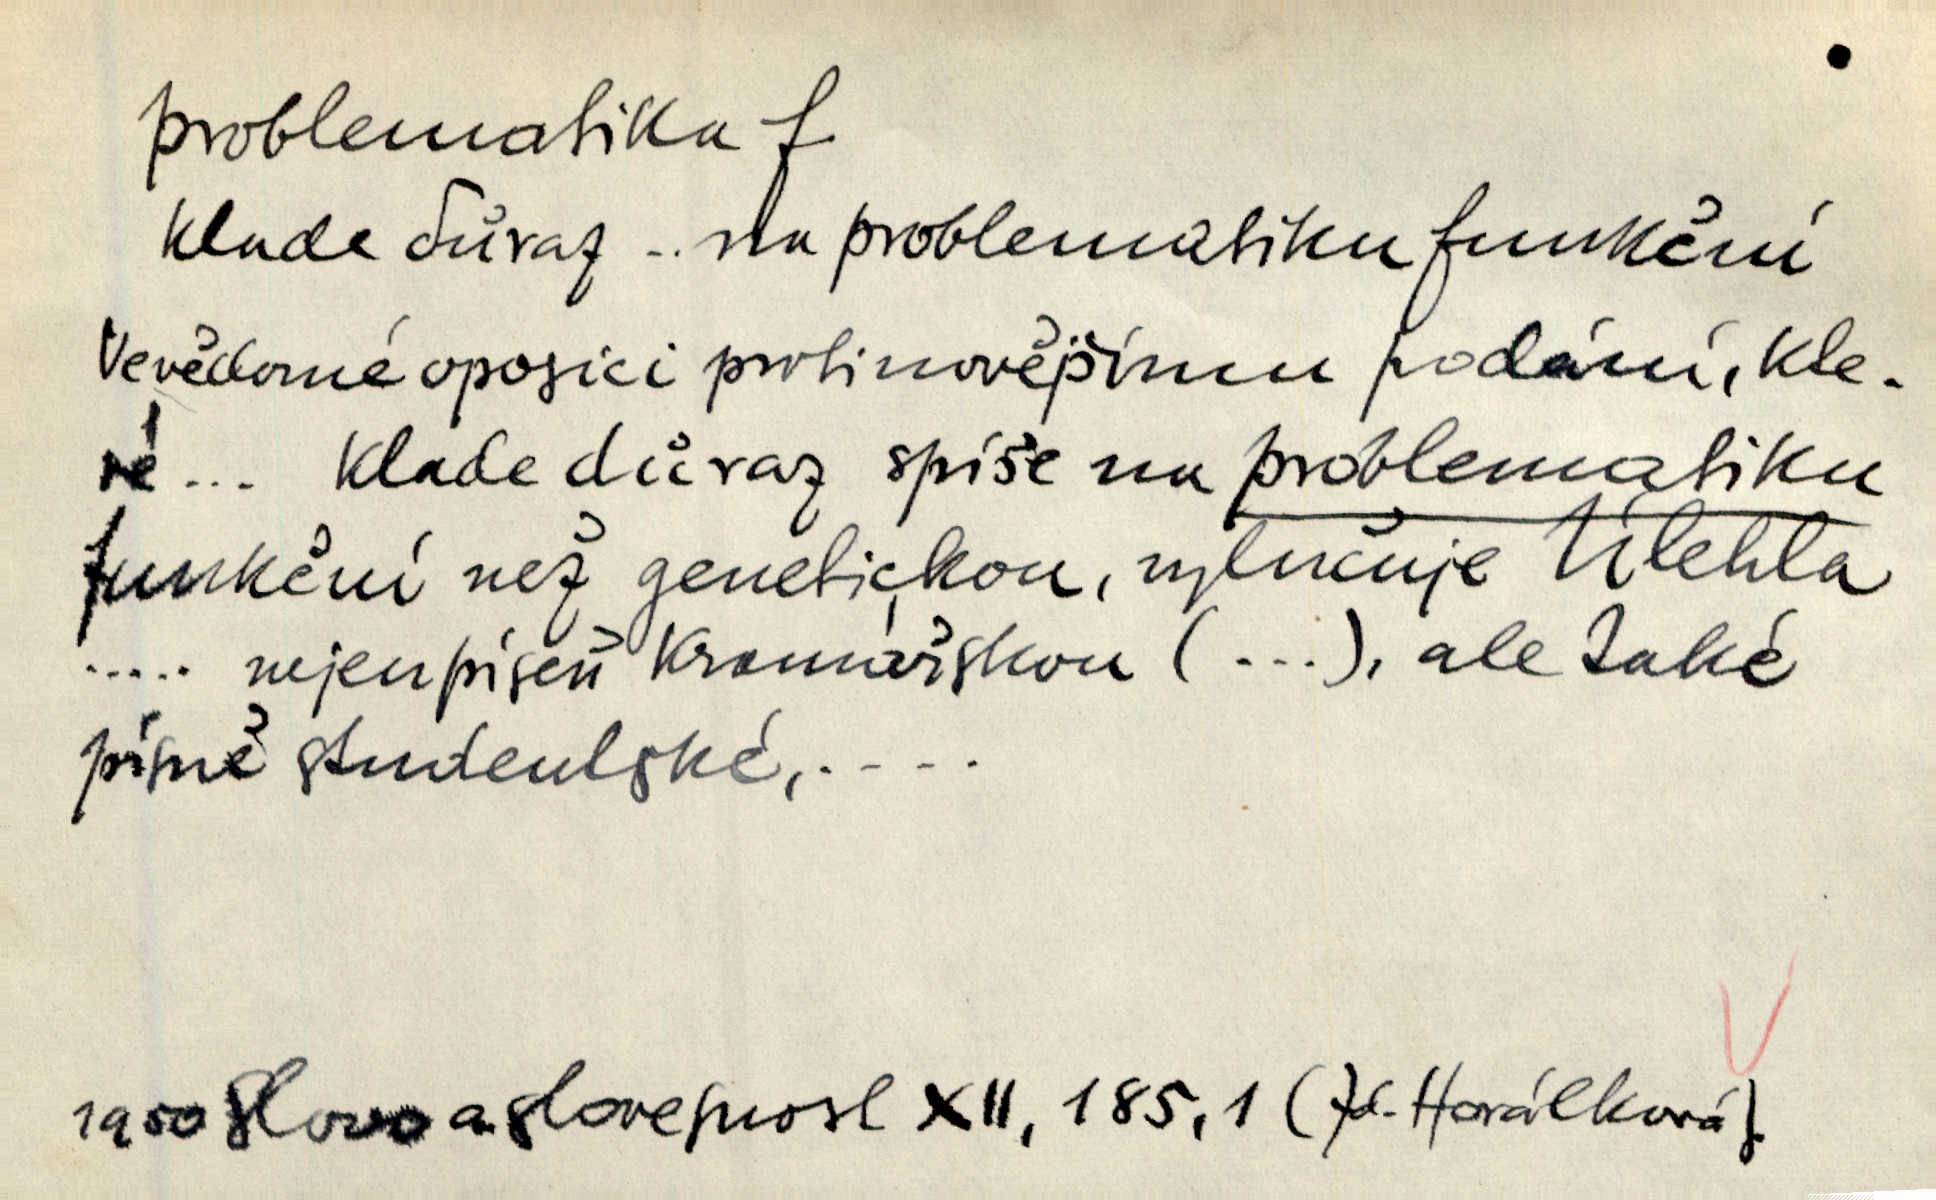 problematika f.
klade důraz .. na problematiku funkční
Ve vědomé oposici proti novějšímu podání, kte-
ré ... klade důraz spíše na problematiku
funkční než genetickou, vylučuje Úlehla
..... nejen píseň kramářskou (...), ale také
písně studentské, ....
1950 Slovo a slovesnost XII, 185,1 (Zd. Horálková).